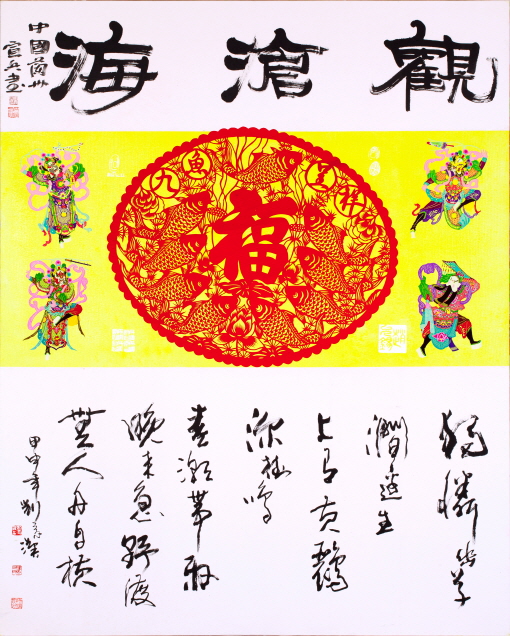 觀滄海
中國蘭州
宣兵書
九魚呈祥
福
獨憐幽草
澗邊生
上有黃鸝
深樹鳴
春潮帶雨
晚來急野渡
無人舟自橫
甲申年劉